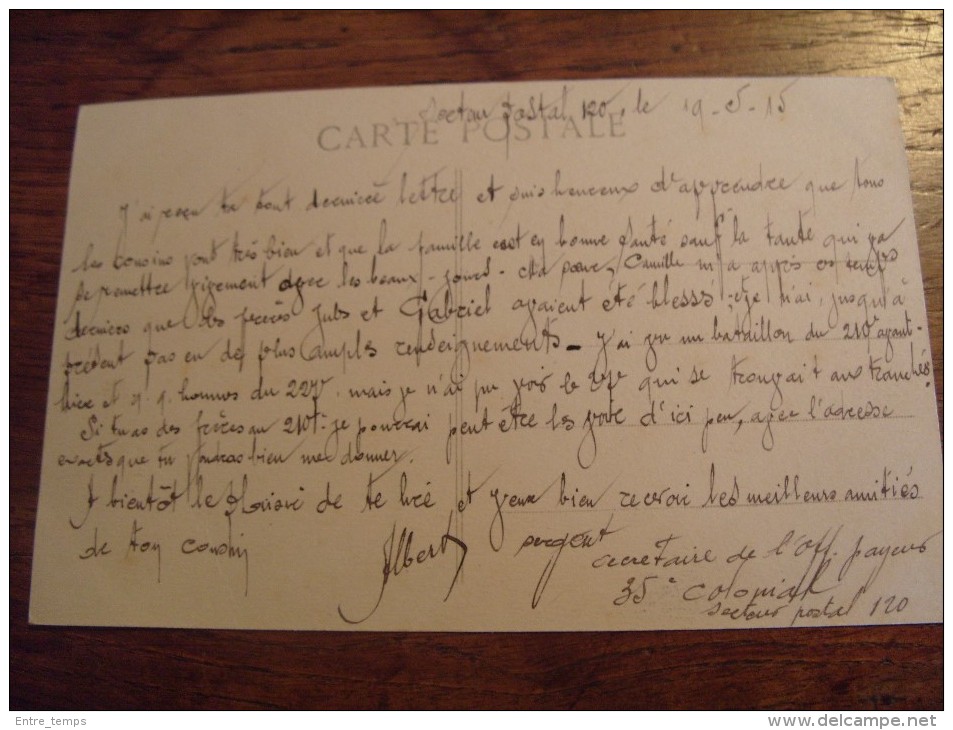 Secteur Postal 120, le 19-5-15
CARTE POSTALE
J'ai reçu ta tout dernière lettre et suis heureux d'apprendre que tous
les cousins vont très bien et que la famille est en bonne santé sauf la tante qui va
se remettre vivement avec les beaux-jours - Ma sœur, Camille m'a appris ces temps
derniers que ses frères Jules et Gabriel avaient été blessés, et je n'ai, jusqu'à
présent pas eu de plus amples renseignements - J'ai vu un bataillon du 210e avant-
hier et q.q. hommes du 227e, mais je n'ai pu voir le 27e qui se trouvait aux tranchées.
Si tu as des frères au 210e je pourrai peut être les voir d'ici peu, avec l'adresse
exacte que tu voudras bien me donner.
A bientôt le plaisir de te lire et veux bien recevoir les meilleurs amitiés
de ton cousin
Albert
sergent
secretaire de l'Off. payeur
35e Colonial
Secteur postal 120
Entre_temps
http://www.delcampe.net